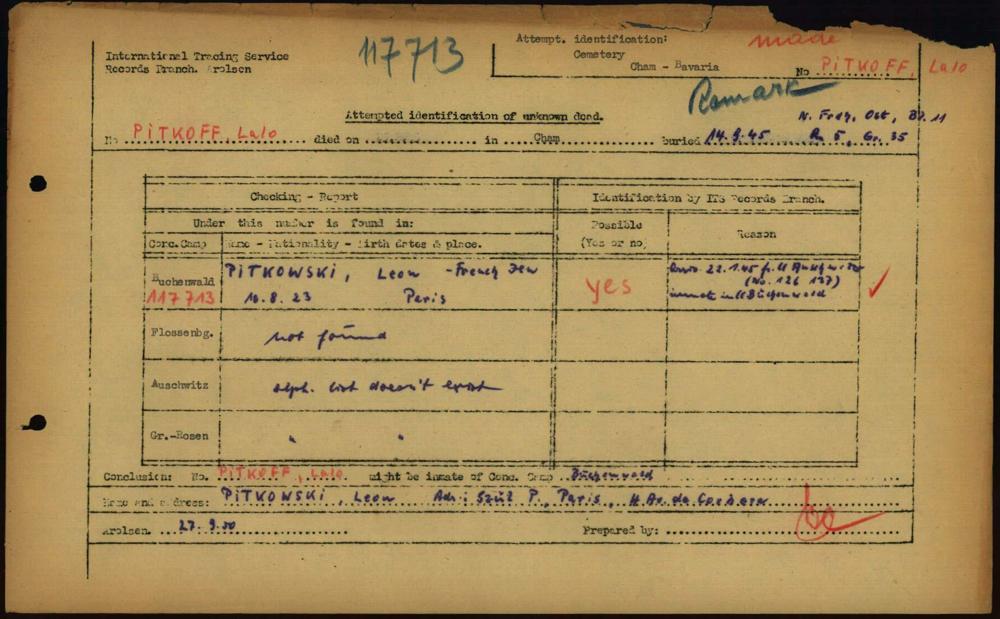 International Tracing Service
Records Branch. Arolsen
117713
Attempt. identification: made
Cemetery
Cham - Bavaria
No PiTKOFF, Lalo
Remark
Attempted identification of unknown dead.
N. Frdh. Ost, Bl. 11
No PiTKOFF, Lalo died on in Cham buried 14.9.45 R 5, Gr. 35
Checking - Report
Identification by ITS Records Branch.
Under this number is found in:
Possible
(Yes or no)
Reason
Conc.Camp
Name - Nationality - Birth dates & place.
Buchenwald
117713
PiTKOWSKI, Leon - French Jew
10.8.23 Paris
yes
22.1.45 Auschwitz
(No. 126 137)
Buchenwald
Flossenbg.
not found
Auschwitz
alph. list doesn't exist
Gr.-Rosen
" "
Conclusion: No. PiTKOFF, Lalo might be inmate of Conc. Camp Buchenwald
Name and address: PiTKOWSKI, Leon Adr: Szul P., Paris, Av. de Corbera
Arolsen. 27.9.50
Prepared by: